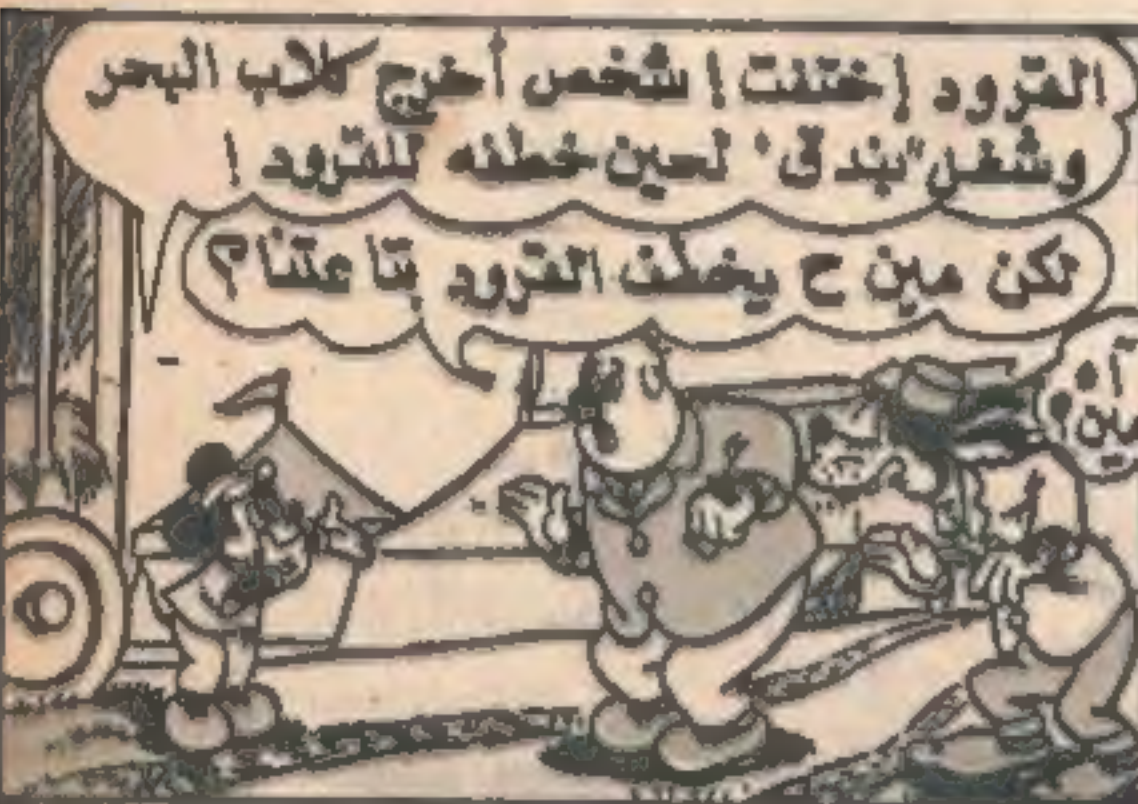 القرود إختفت ! شخص أخرج كلاب البحر
وشغل "بندق" لحين خطفه للقرود !
لكن مين ح يخطف القرود بتاعتنا ؟
آه
مين ؟